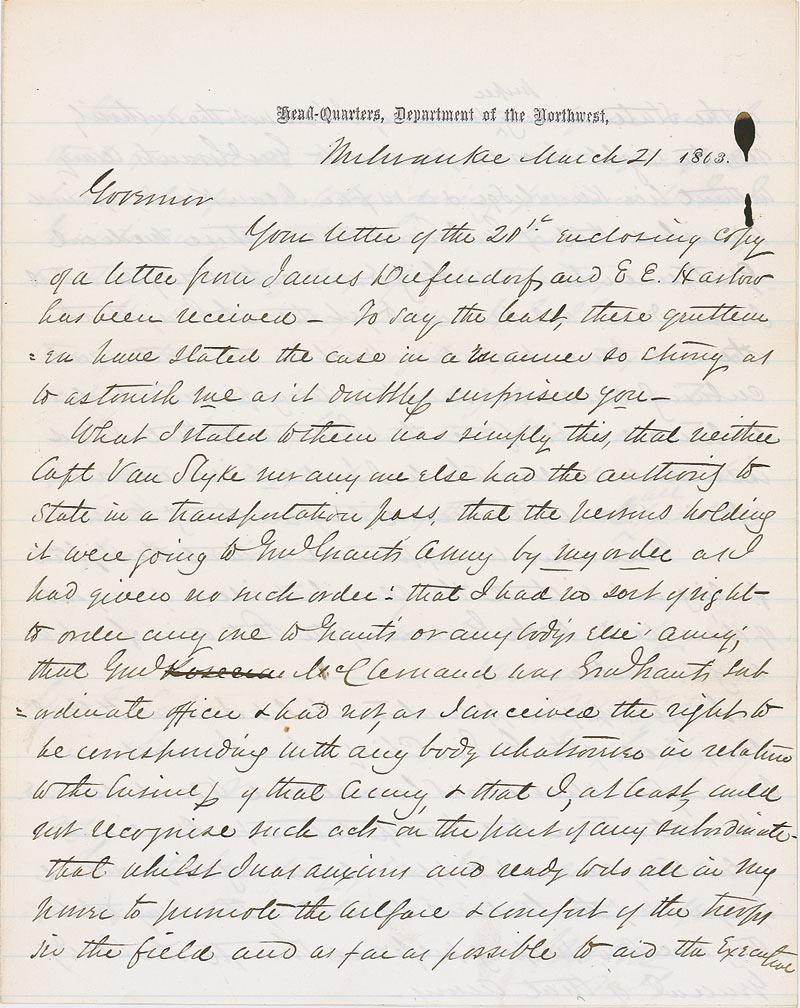 Head-Quarters, Department of the Northwest,
Milwaukie March 21 1863.
Governor
Your letter of the 20th enclosing copy
of a letter from James Diefendorf and E E. Harlow
has been received — To say the least, these gentlem
=en have stated the case in a manner so strong as
to astonish me as it doubtless surprised you —
What I stated to them was simply this, that neither
Capt Van Slyke nor any one else had the authority to
State in a transportation pass, that the persons holding
it were going to Genl Grant's Army by my order as I
had given no such order: that I had no sort of right
to order any one to Grant's or any body's else army;
that Genl Rosecrans McClernand was Genl Grant's sub
=ordinate officer & had not, as I conceived the right to
be corresponding with any body whatsoever in relation
to the business of that Army, & that I, at least, could
not recognise such acts on the part of any subordinate-
that whilst I was anxious and ready to do all in my
power to promote the welfare & comfort of the troops
in the field and as far as possible to aid the Executive